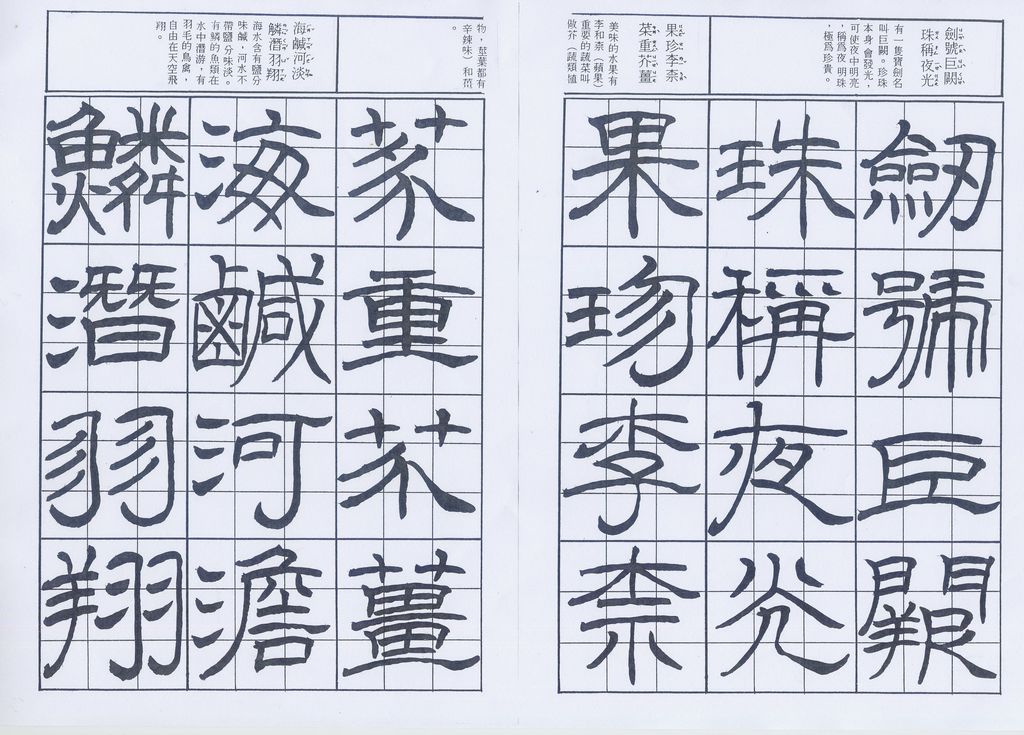 劍號巨闕
珠稱夜光
有一隻寶劍名
叫巨闕。珍珠
本身,會發光,
可使夜中明亮
,稱爲夜明珠
,極爲珍貴。
果珍李柰
菜重芥薑
美味的水果有
李和柰(蘋果)
重要的蔬菜叫
做芥(蔬類植
劒號巨闕
珠稱夜光
果珍李柰
物,莖葉都有
辛辣味)和
。
海鹹河淡
鱗潛羽翔
海水含有鹽分
味鹹,河水不
帶鹽分味淡。
有鱗的魚類在
水中潛游,有
羽毛的鳥禽,
自由在天空飛
翔。
菜重芥薑
海鹹河澹
鱗潛羽翔